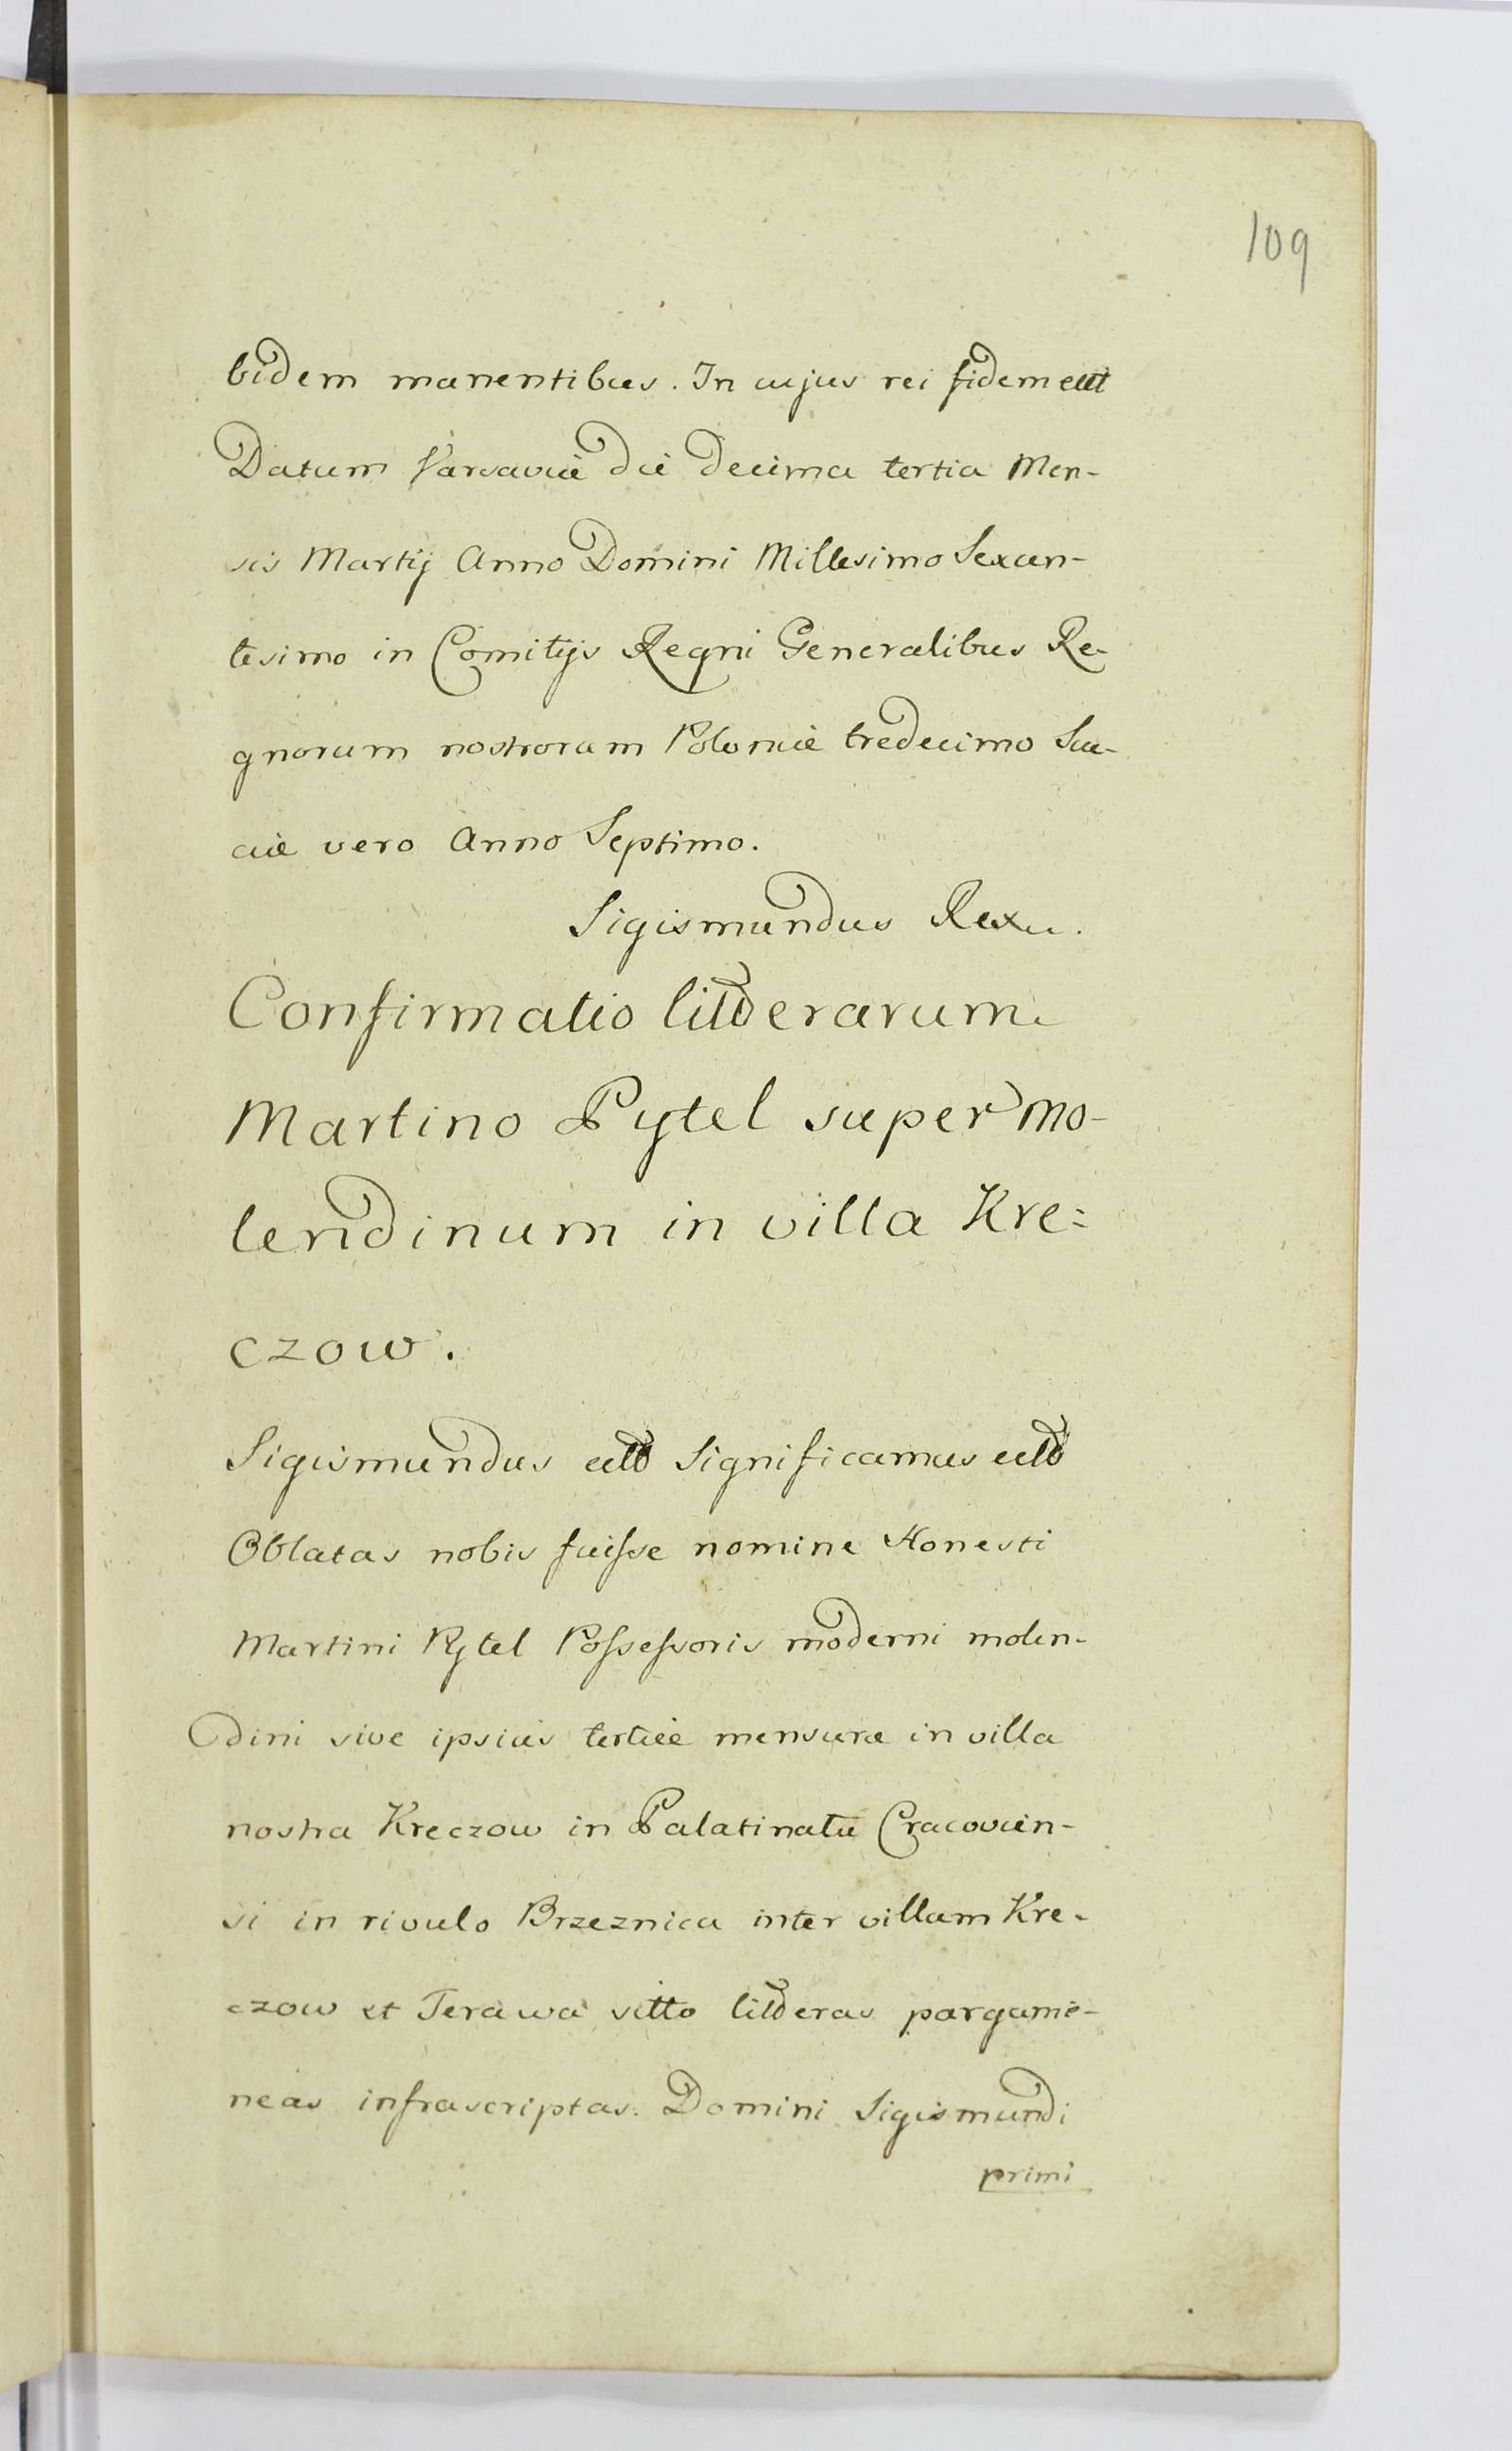 109
bidem manentibus. In cujus rei fidem ett
Datum Varsaviæ die decima tertia Men-
sis Martij Anno Domini Millesimo Sexcen-
tesimo in Comitijs Regni Generalibus Re-
gnorum nostrorum Poloniæ tredecimo Sue-
ciæ vero Anno Septimo.
Sigismundus Rex.
Confirmatio litterarum
Martino Pytel super mo-
lendinum in villa Kre:
czow.
Sigismundus ett Significamus ett
Oblatas nobis fuisse nomine Honesti
Martini Pytel Possessoris moderni molen-
dini sive ipsius tertiæ mensuræ in villa
nostra Kreczow in Palatinatu Cracovien-
si in rivulo Brzeznica inter villam Kre-
czow et Terawa sitto litteras pargame-
neas infrascriptas. Domini Sigismundi
primi